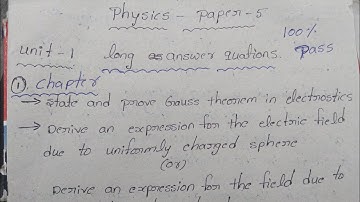 Physics - paper-5
100%
Pass
unit-1 long answer quations.
① chapter
→ State and prove Gauss theorem in electrostics
→ Derive an expression for the electric field
due to uniformly charged sphere
(or)
Derive an expression for the field due to